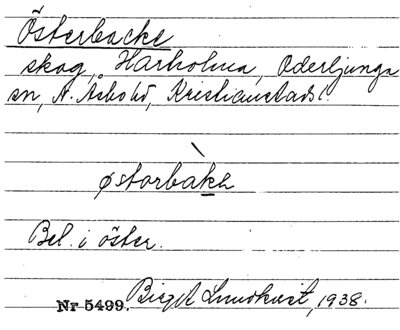 Österbacke
skog, Harholma, Oderljunga
sn, N. Åsbo hd, Kristianstads l.
østorbakə
Bel. i öster.
Nr 5499. Birgit Lundkvist, 1938.